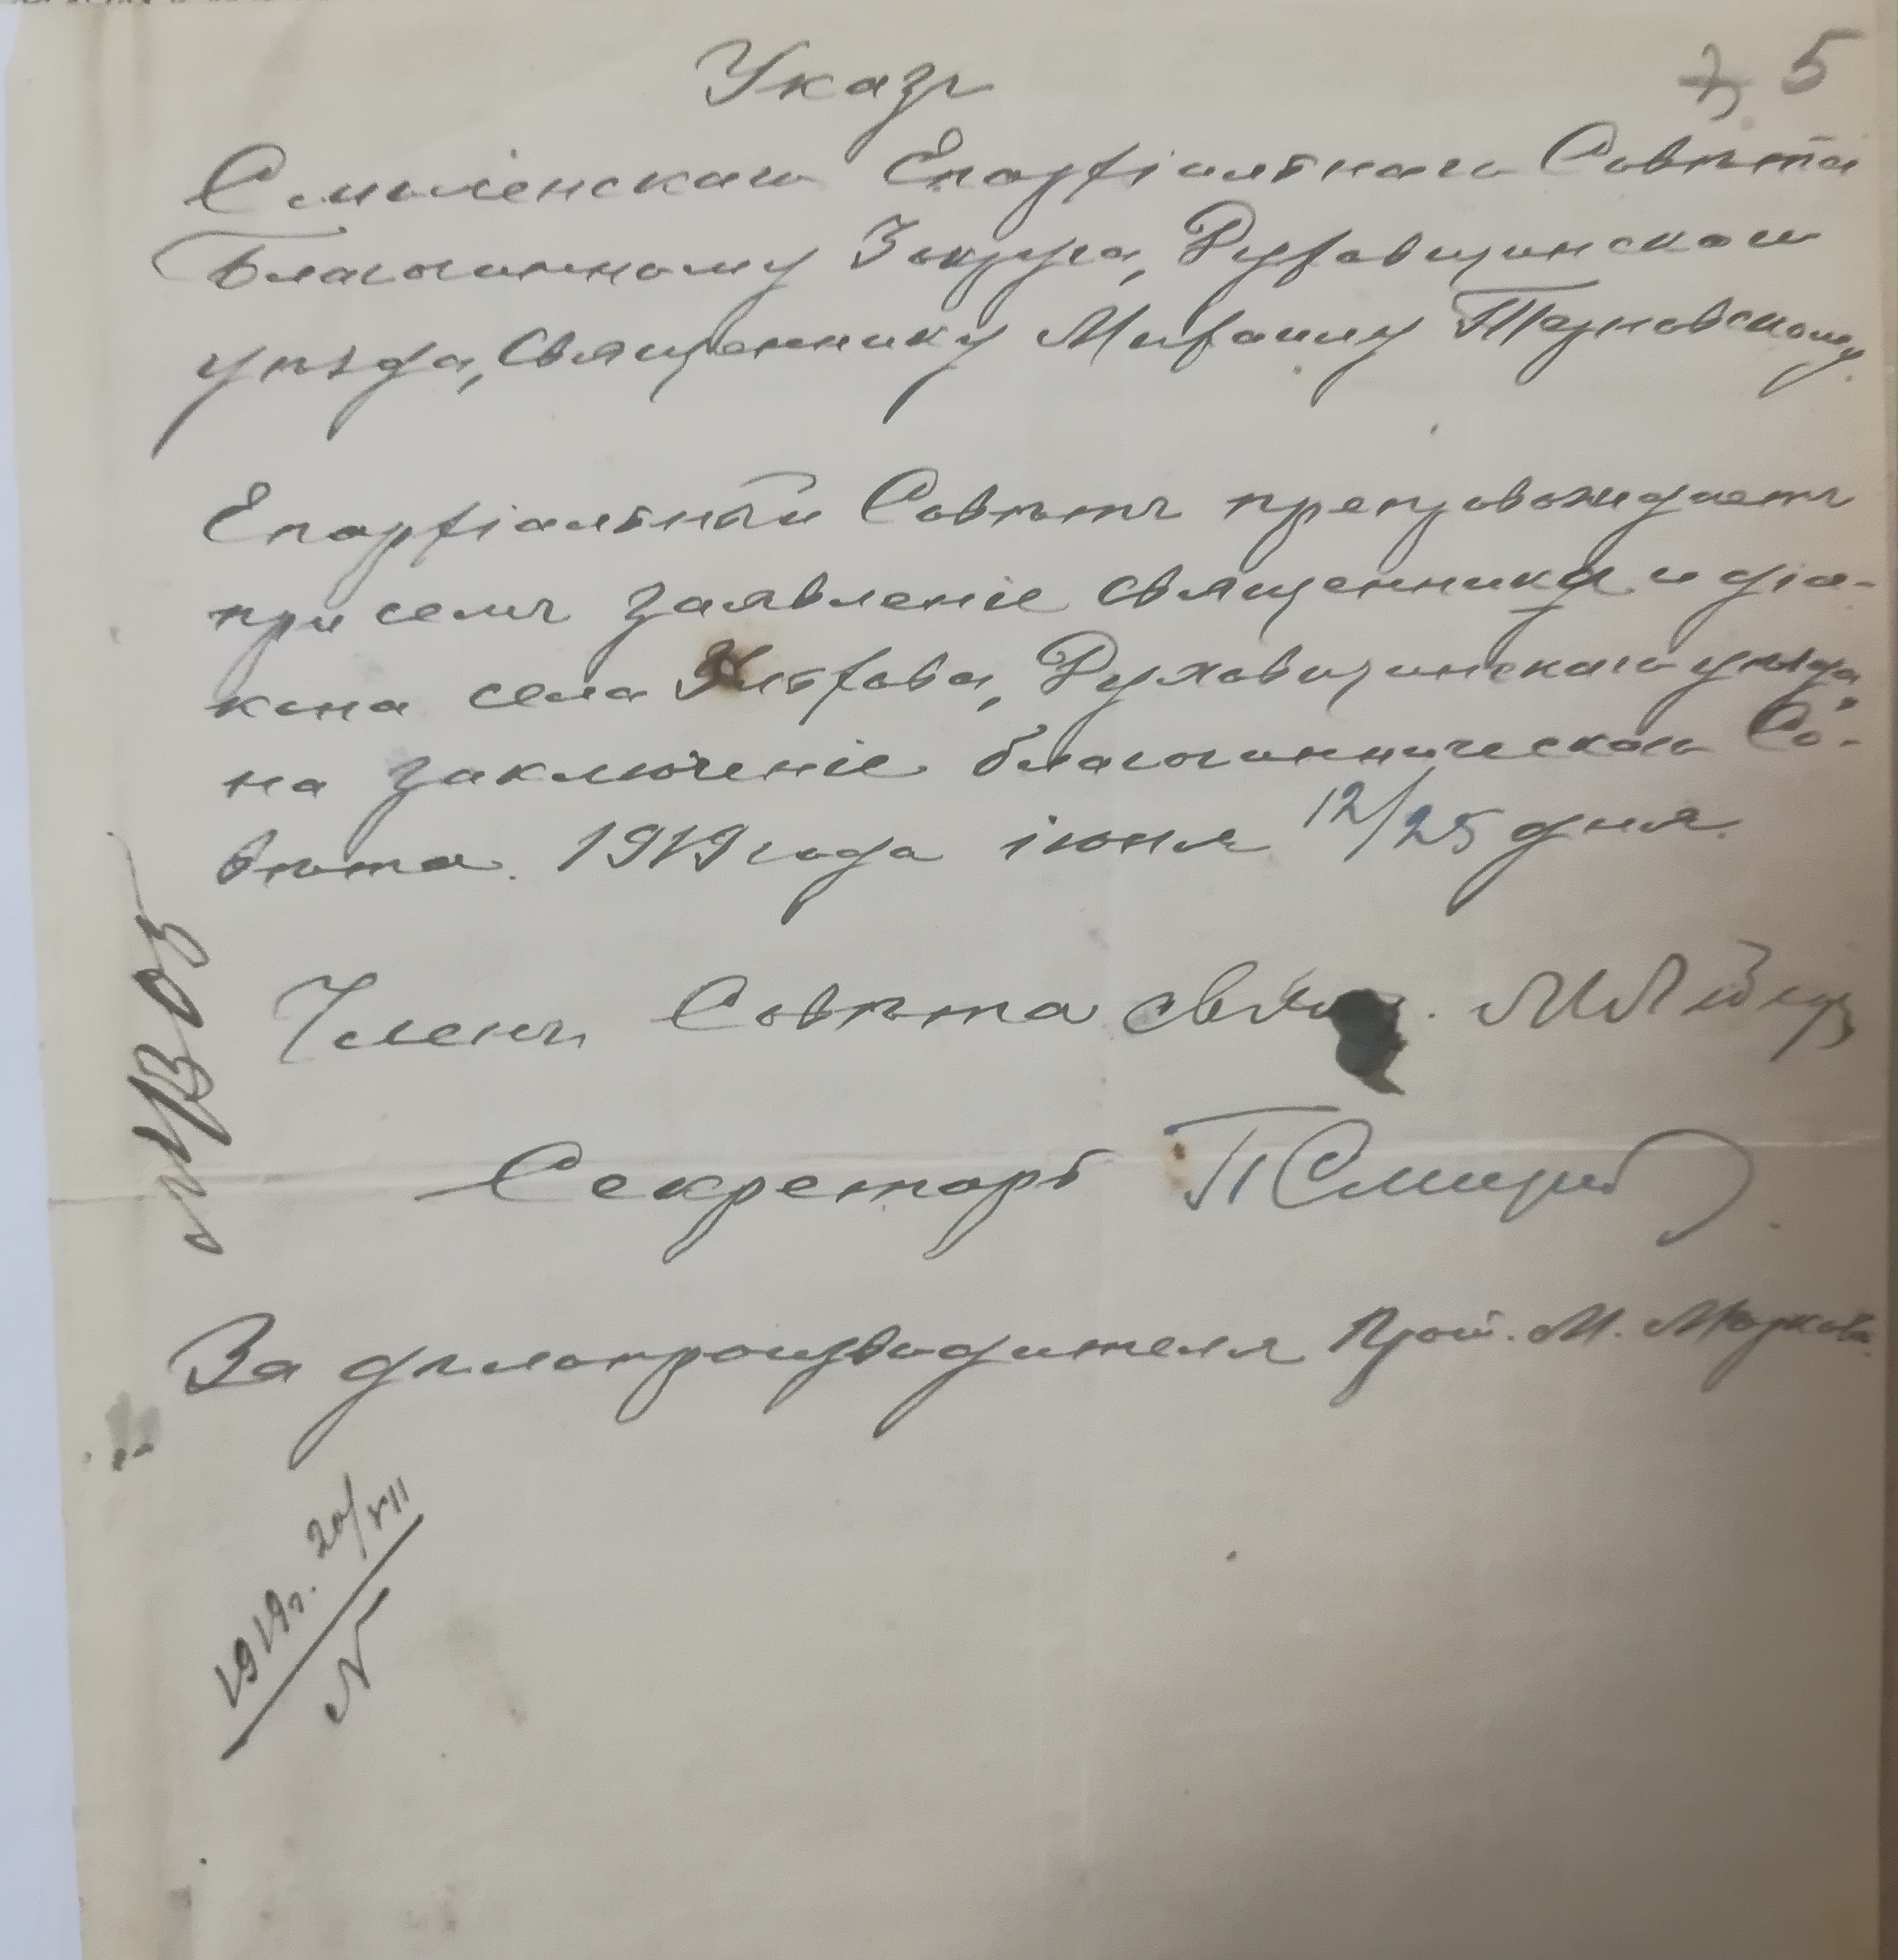 5
Указъ
Смоленскаго Епархіальнаго Совѣта
Благочинному 3 округа, Духовщинскаго
уѣзда, Священнику Михаилу Тарновскому.
Епархіальный Совѣтъ препровождаетъ
при семъ заявленіе священника и діа-
кона села Ульхова, Духовщинскаго уѣзда,
на заключеніе благочинническаго Со-
вѣта. 1919 года іюня 12/25 дня.
Членъ Совѣта свящ.
Секретарь П Смир
За дѣлопроизводителя Прот. М. Марковъ.
1919г. 20/VII
N